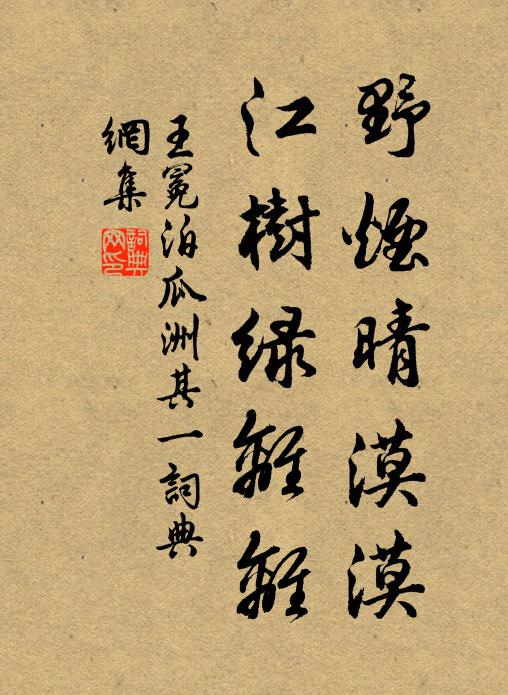 野煙晴漠漠
江樹綠離離
王冕泊瓜洲其一詞典
網集
詞典網印